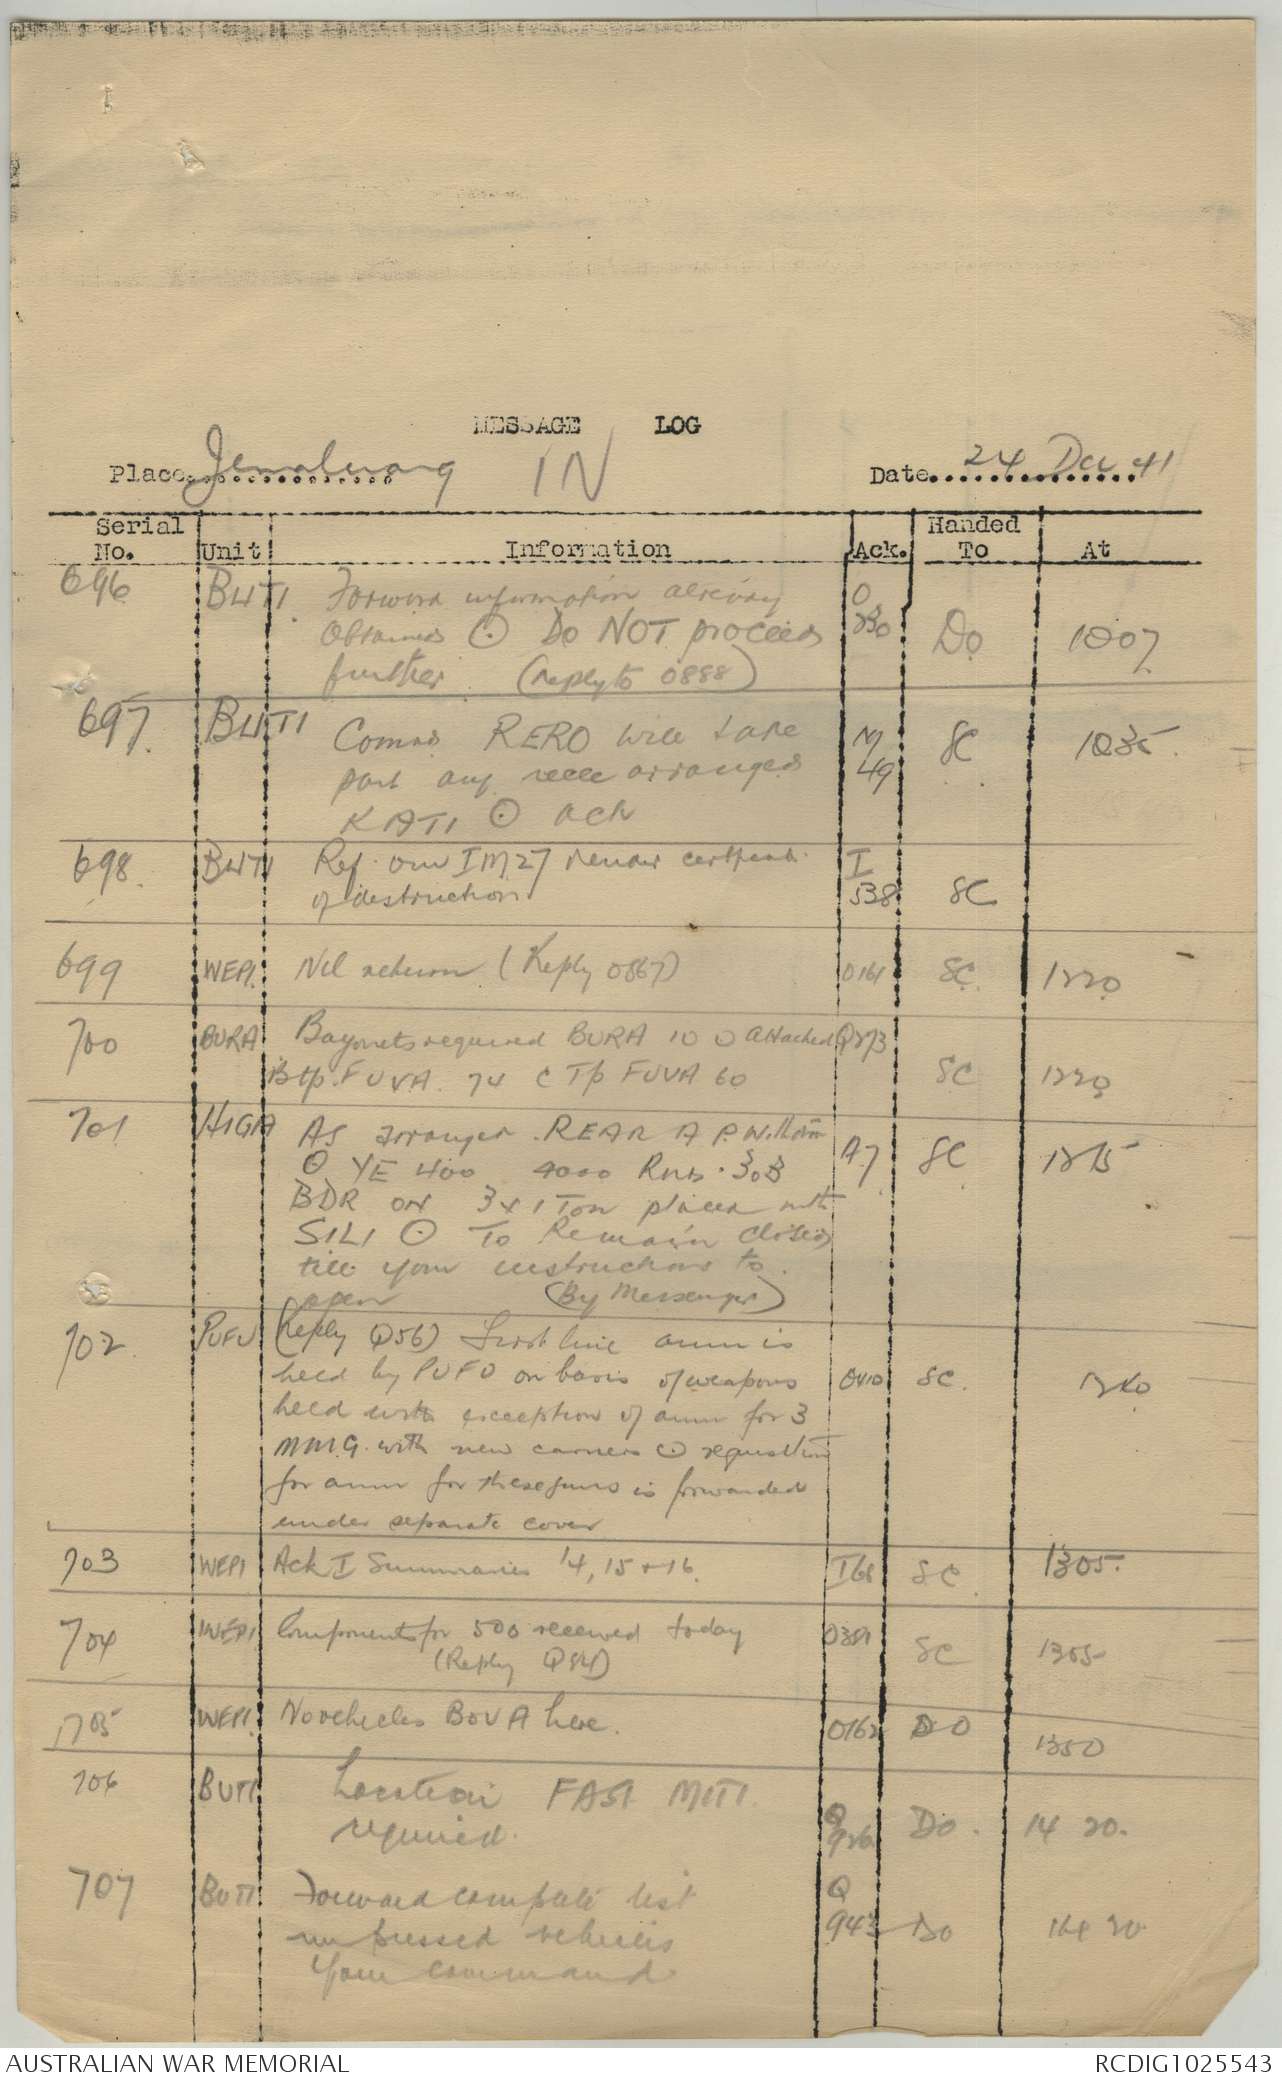 MESSAGE LOG
Place Jemaluang IN Date 24 Dec 41
Serial No. Unit Information Ack. Handed To At
696 BUTI Forward information already O
obtained ⊙ Do NOT proceed 230 Do 1007
further (reply to 0888)
697 BUTI Comd RERO will take M SC 1035
part any recce arranged 49
KATI ⊙ ack
698 BUTI Ref. our IM27 render certificate I
of destruction 538 SC
699 WEPI Nil return (Reply 0867) 0161 SC 1220
700 BURA Bayonets required BURA 10 ⊙ attached Q273
B tp. FUVA. 74 C Tp FUVA 60 SC 1220
701 HIGA As arranged REAR A P
⊙ YE 400 4000 Rnds .303 A7 SC
BDR on 3 x 1 Ton placed with
SILI ⊙ To Remain closed
till your instructions to
open (By Messenger)
702 PUFU (Reply Q56) First line amm is
held by PUFU on basis of weapons 0410 SC. 1240
held with exception of amm for 3
MMG. with new carriers ⊙ requisition
for amm for these guns is forwarded
under separate cover
703 WEPI Ack I Summaries 14, 15 + 16. I68 SC 1305.
704 WEPI Components for 500 received today SC 1305
(Reply Q84)
705 WEPI. No vehicles BOVA here. 0162 DO 1350
706 BUTI Location FASI MITI Q
required. 926 Do. 14 20.
707 BUTI Forward complete list Q
impressed vehicles 943 Do 14 20
your command
AUSTRALIAN WAR MEMORIAL RCDIG1025543